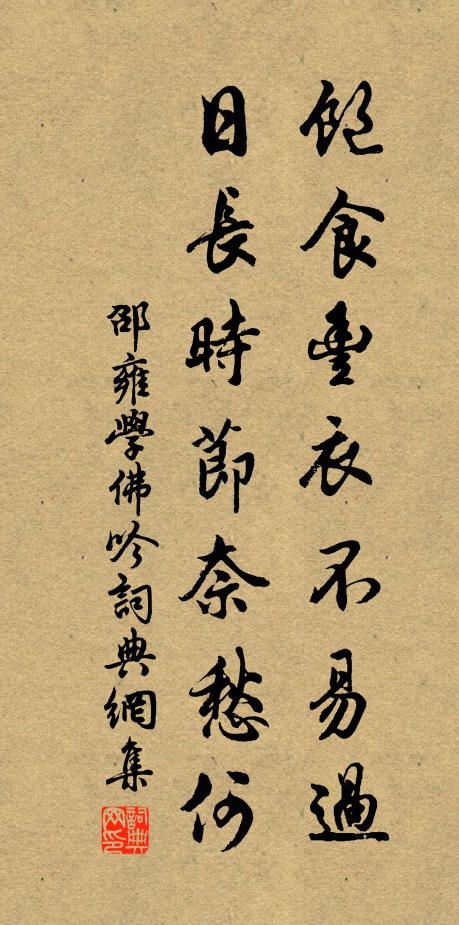 飽食豐衣不易過
日長時節奈愁何
邵雍學佛吟詞典網集
詞典
网印